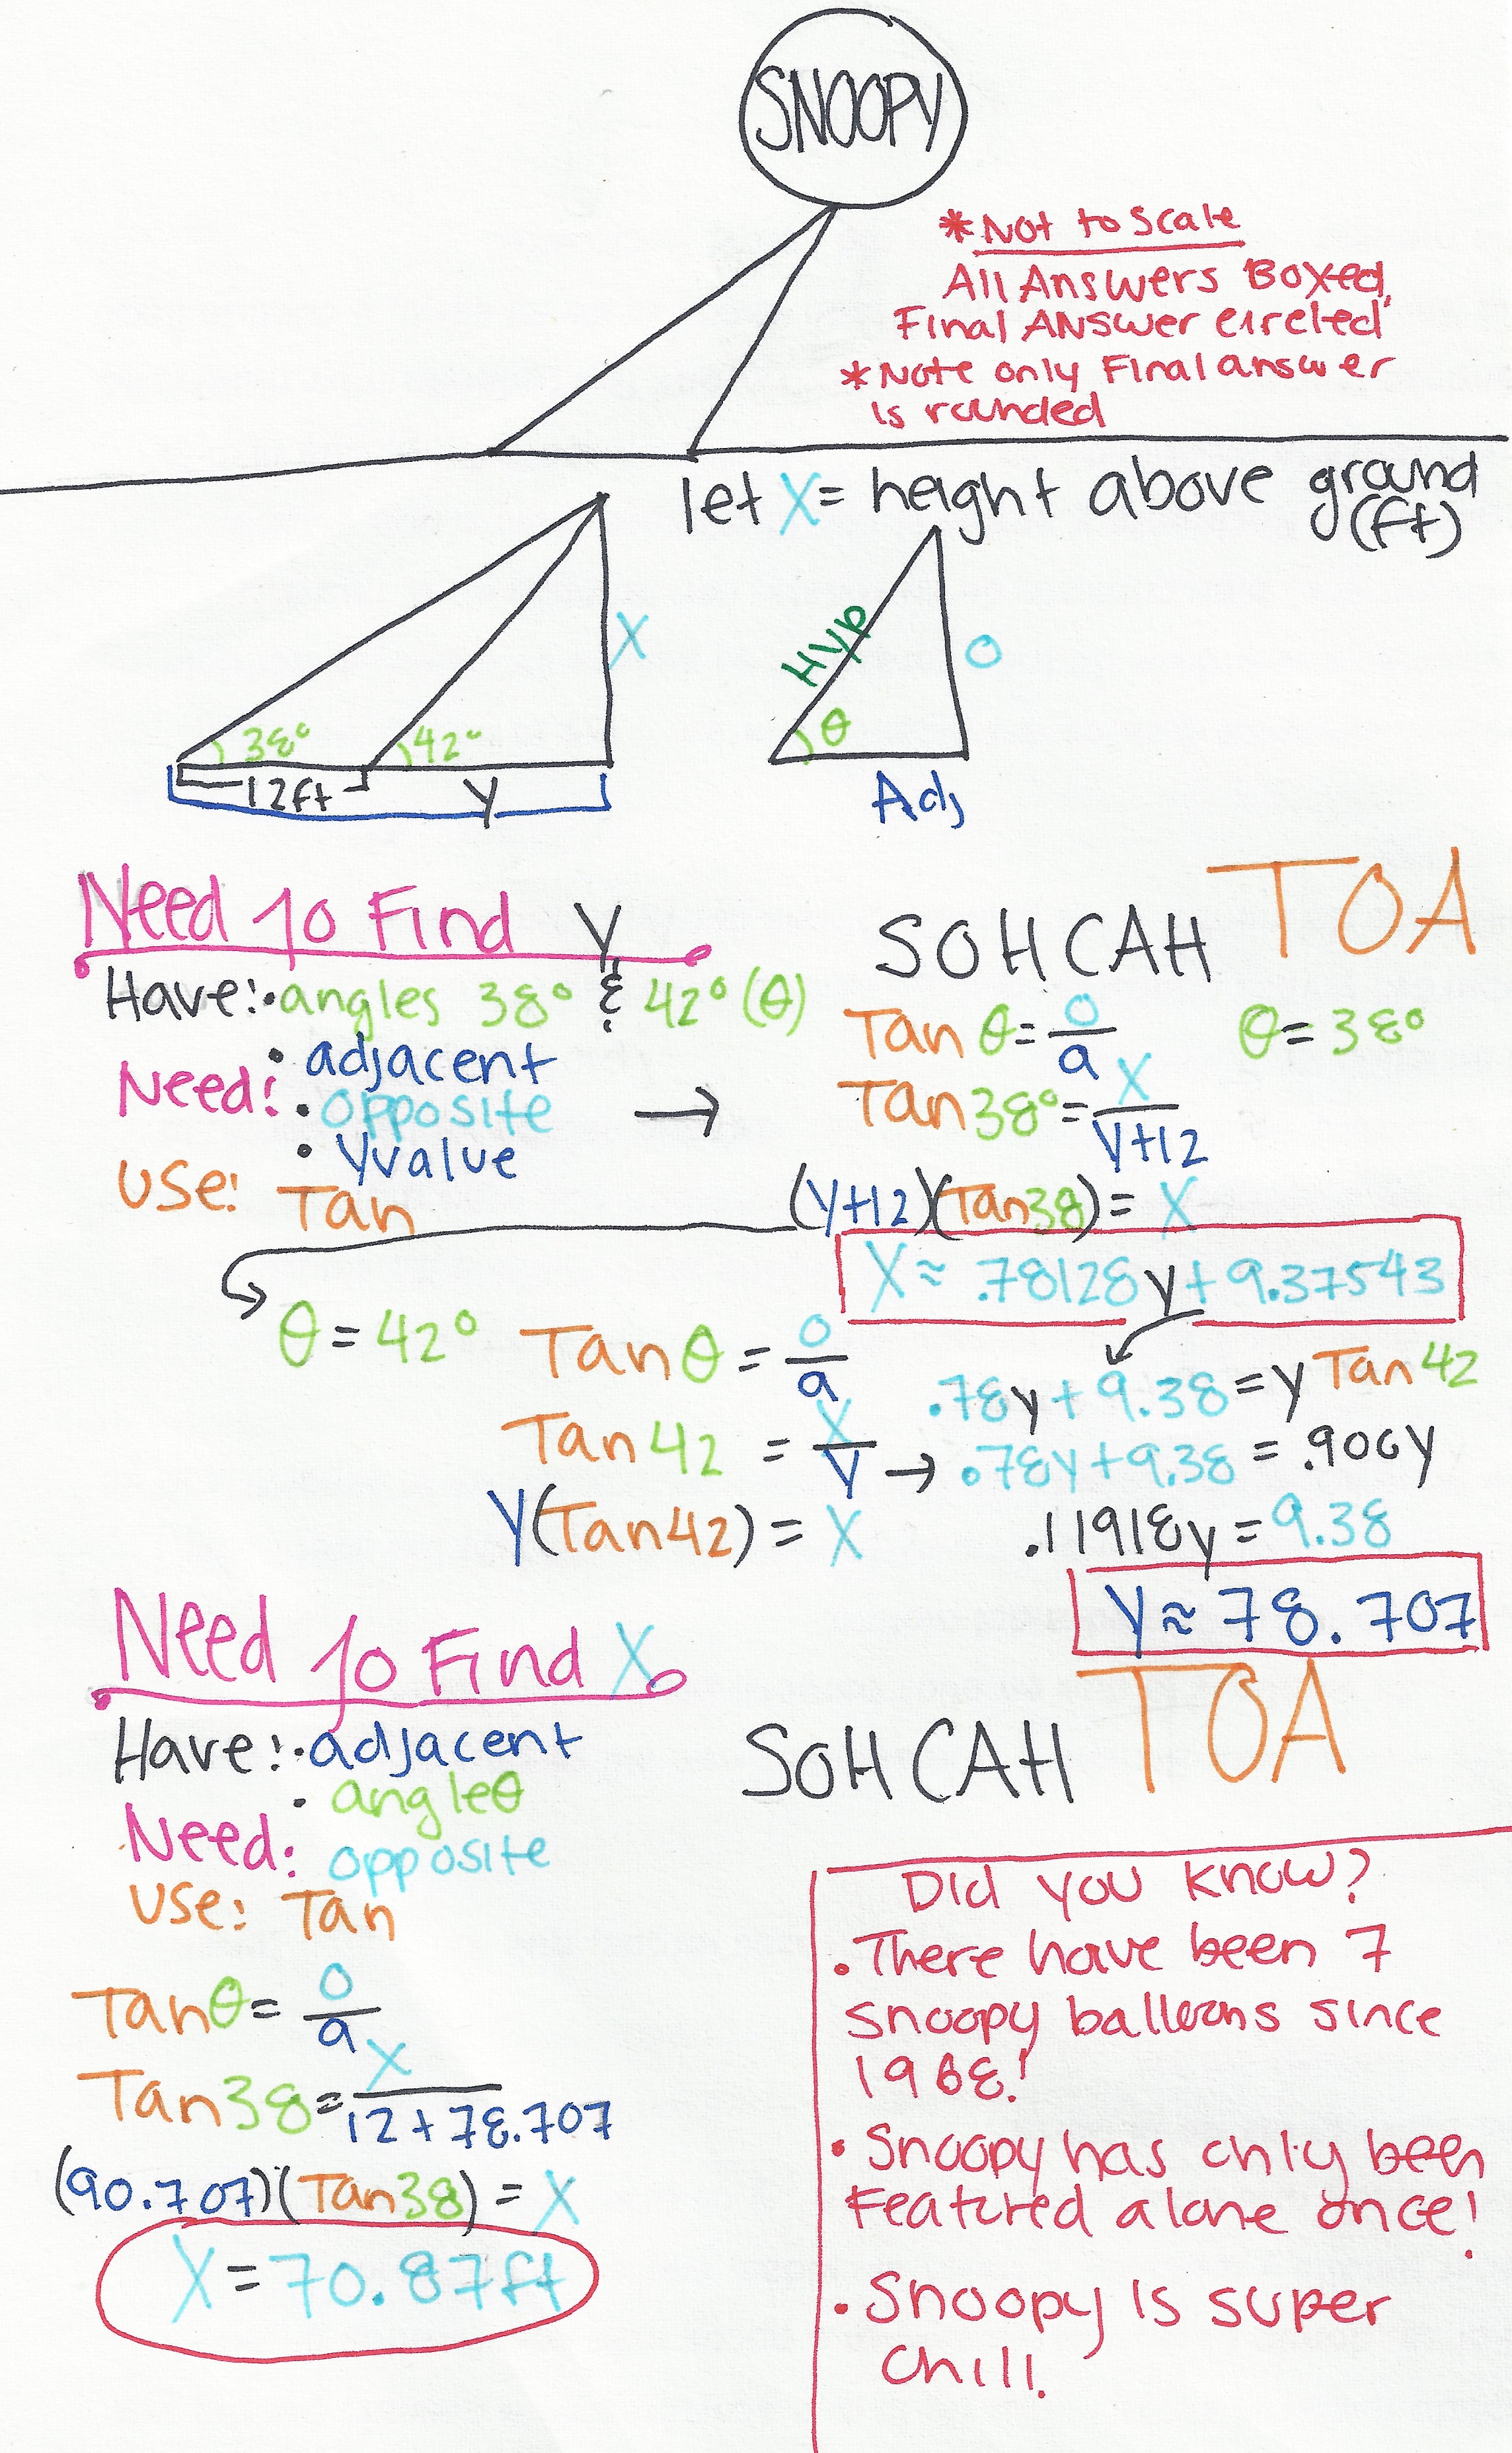 SNOOPY
*Not to scale
All Answers Boxed,
Final Answer circled
*Note only Final answer
is rounded
let X = height above ground
(ft)
X
38°
42°
12ft
y
Hyp
O
θ
Adj
Need to Find y
Have: • angles 38° & 42° (θ)
Need: • adjacent
• opposite
• y value
Use: Tan
SOH CAH TOA
Tan θ = o/a
θ = 38°
Tan 38° = X/y+12
(y+12)(Tan 38) = X
X ≈ .78128y + 9.37543
θ = 42°
Tan θ = o/a
Tan 42 = X/y →
y(Tan 42) = X
.78y + 9.38 = y Tan 42
.78y + 9.38 = .900y
.11918y = 9.38
y ≈ 78.707
Need to Find X
Have: • adjacent
• angle θ
Need: opposite
Use: Tan
SOH CAH TOA
Tan θ = o/a
Tan 38 = X/12 + 78.707
(90.707)(Tan 38) = X
X = 70.87ft
Did you know?
• There have been 7
snoopy balloons since
1968!
• Snoopy has only been
Featured alone once!
• Snoopy is super
chill.